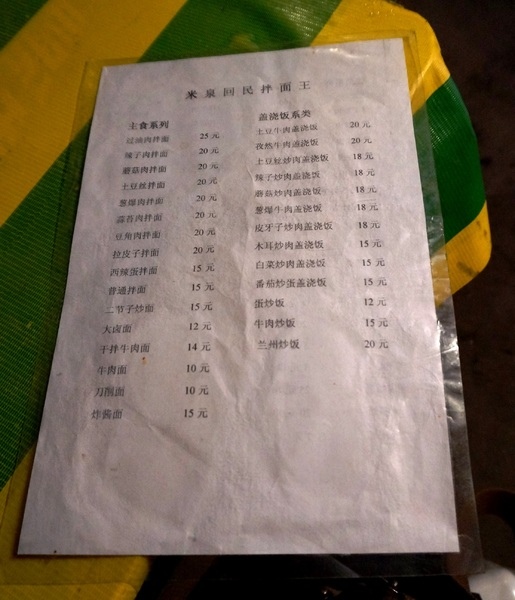 米泉回民拌面王
主食系列
过油肉拌面 25元
辣子肉拌面 20元
蘑菇肉拌面 20元
土豆丝拌面 20元
葱爆肉拌面 20元
蒜苔肉拌面 20元
豆角肉拌面 20元
拉皮子拌面 20元
西辣蛋拌面 15元
普通拌面 15元
二节子炒面 15元
大卤面 12元
干拌牛肉面 14元
牛肉面 10元
刀削面 10元
炸酱面 15元
盖浇饭系类
土豆牛肉盖浇饭 20元
孜然牛肉盖浇饭 20元
土豆丝炒肉盖浇饭 18元
辣子炒肉盖浇饭 18元
蘑菇炒肉盖浇饭 18元
葱爆牛肉盖浇饭 18元
皮牙子炒肉盖浇饭 18元
木耳炒肉盖浇饭 15元
白菜炒肉盖浇饭 15元
番茄炒蛋盖浇饭 15元
蛋炒饭 12元
牛肉炒饭 15元
兰州炒饭 20元